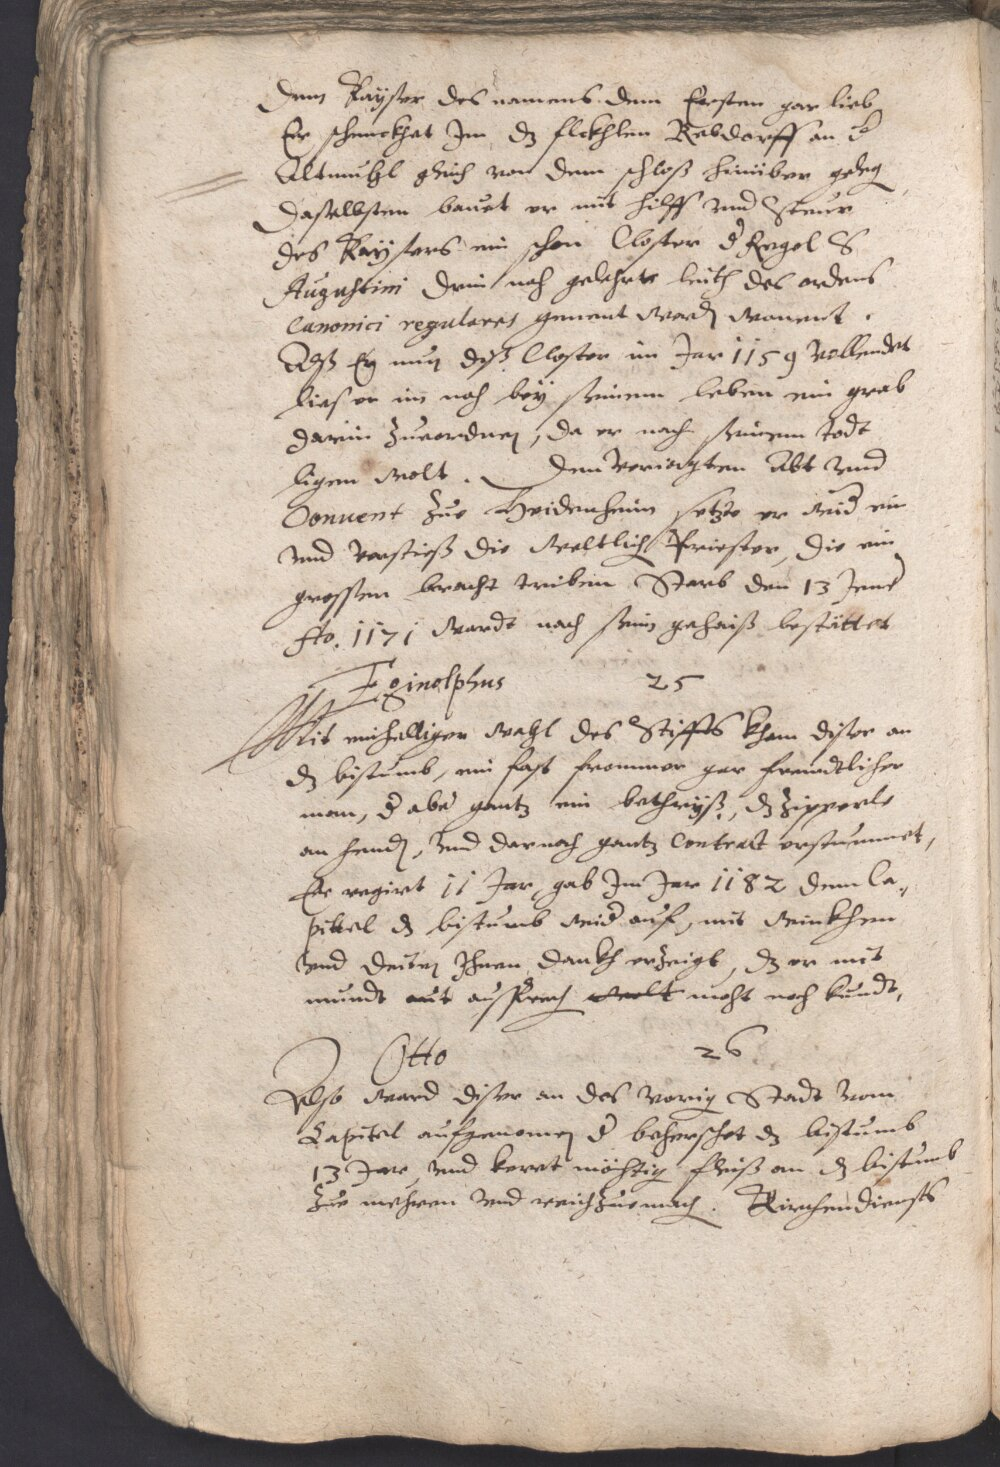 dem Kayser des namens dem Ersten gar lieb
Er schenckhet Im dz flekhlen Rebdorff an d'
Altmuhl gleich von dem schloß hinüber geleg
daselbsten bauet er mit hilff vnd Steur
des Kaysers ein schon Closter d' Regel S
Augustini drin noch gelehrte leuth des ordens
Canonici regulares genent werd wonent.
Alß Er nun diß Closter im Jar 1159 vollendet
lies er im noch bey seinem leben ein grab
darin zuuordnen, da er nach seinem todt
ligen wolt. Den veriagten Abt vnd
Conuent zue Heidenheim setzte er wid' ein
vnd verstieß die weltlich Priester, die ein
grossen bracht triben Starb den 13 Jener
Ao. 1171 wardt nach seim gehaiß bestättet
Eginolphus 25
Mit einhelliger wahl des Stiffts kham diser an
dz bistumb, ein fast frommer gar freundtlicher
man, d' aber gantz ein bethriß, dz Zipperle
an hend, vnd darnach gantz Contract erstummet,
Er regirt 11 Jar, gab Im Jar 1182 dem Ca-
pittel dz bistumb wid' auf, mit winkhen
vnd deiten Ihnen dankh erzeigt, dz er mit
mundt aut außsprech wolt noch kundt,
Otto 26
Also ward diser an des vorig Stadt vom
Capitel aufgenomen d' beherschet dz bistumb
13 Jar vnd keret mächtig fleiß an dz bistumb
zue mehren vnd reich zuemach. Kirchendiensts